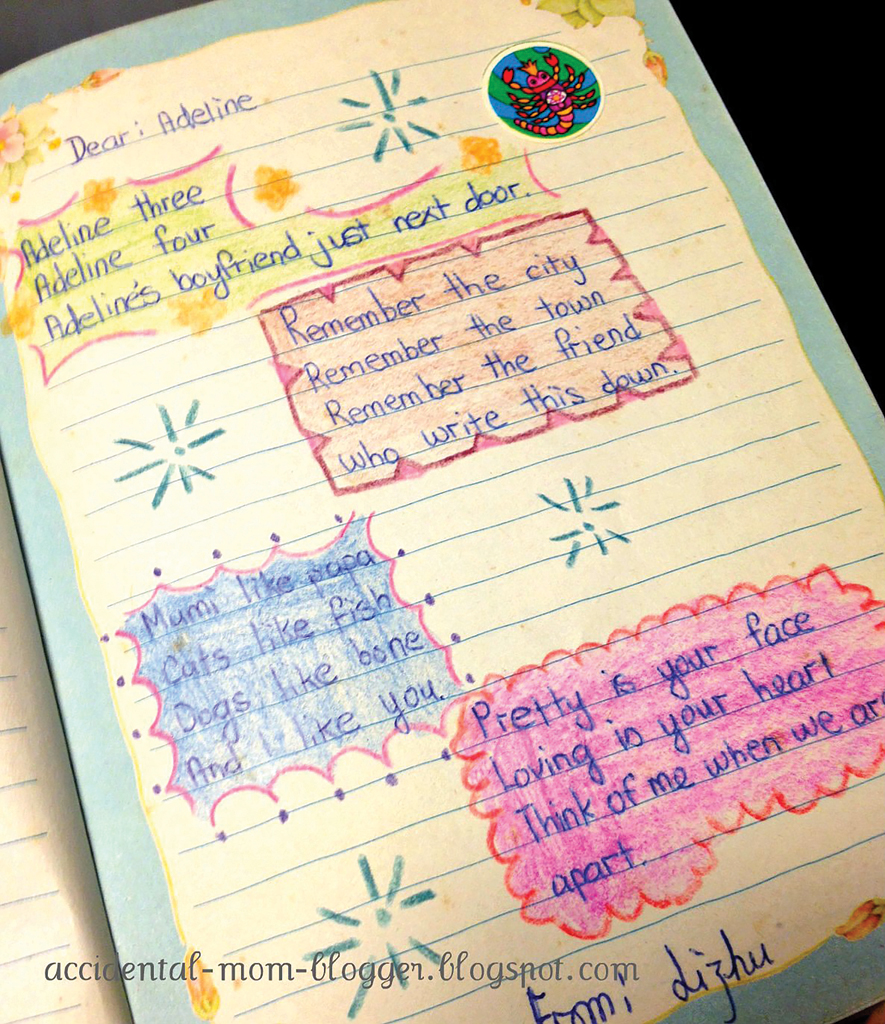 Dear: Adeline
Adeline three
Adeline four
Adeline's boyfriend just next door.
Remember the city
Remember the town
Remember the friend
who write this down.
Mumi like papa
Cats like fish
Dogs like bone
And I like you.
Pretty is your face
Loving is your heart
Think of me when we are
apart.
From: Lizhu
accidental-mom-blogger.blogspot.com